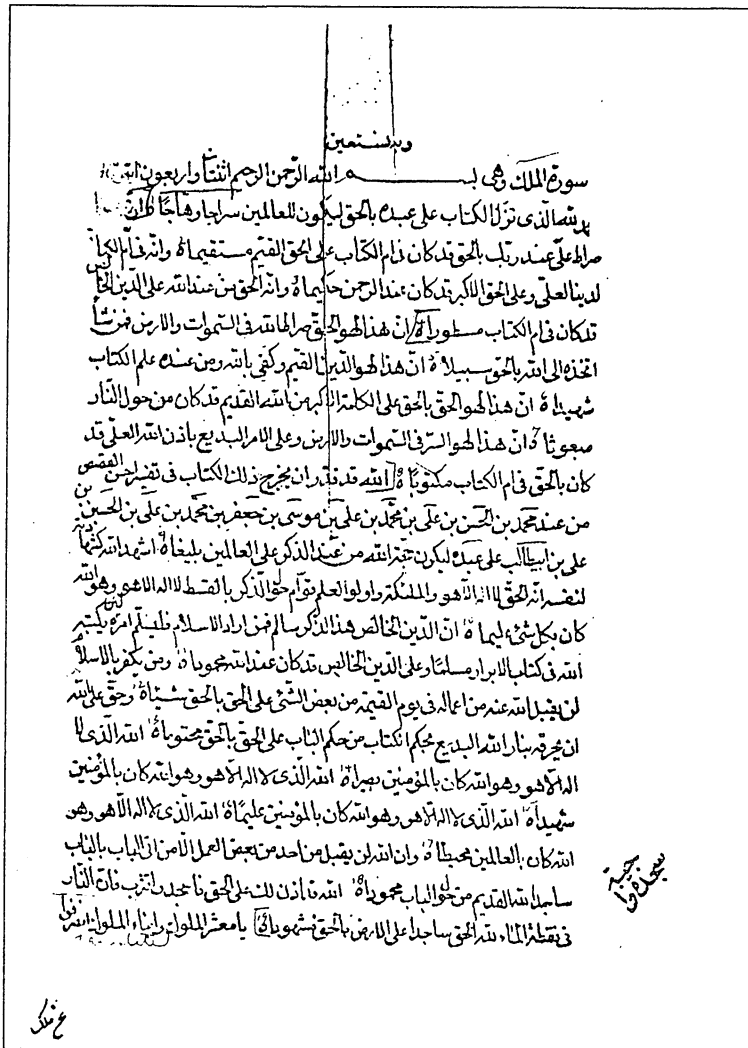 وبه نستعين
سورة الملك وهى بسم الله الرحمن الرحيم اثنتان واربعون
الله الذى نزل الكتاب على عبده بالحق ليكون للعالمين سراجا وهاجاً ان
صراط علىّ عند ربك بالحق قد كان فى ام الكتاب على الحق القيم مستقيماً وانه فى ام الكتاب
لدينا لعلى وعلى الحق الاكبر قد كان عند الرحمن حكيماً وانه الحق من عند الله على الدين الخالص
قد كان فى ام الكتاب مسطوراً ان هذا لهو الحق صراط الله فى السموات والارض فمن شاء
اتخذه الى الله بالحق سبيلاً ان هذا لهو الدين القيم وكفى بالله ومن عنده علم الكتاب
شهيداً ان هذا لهو الحق بالحق على الكلمة الاكبر من الله القديم قد كان من حول النار
مبعوثاً ان هذا لهو السر فى السموات والارض وعلى الامر البديع باذن الله العلى قد
كان بالحق فى ام الكتاب مكتوباً الله قد قدر ان يخرج ذلك الكتاب فى تفسير احسن القصص
من عند محمد بن الحسن بن على بن محمد بن على بن موسى بن جعفر بن محمد بن على بن الحسين بن
على بن ابيطالب على عبده ليكون حجة الله من عند الذكر على العالمين بليغاً اشهد الله كشهادته
لنفسه انه الحق لا اله الا هو والملئكة واولوا العلم قوام حول الذكر بالقسط لا اله الا هو وهو الله
كان بكل شىء عليماً ان الدين الخالص هذا الذكر سالم فمن اراد الاسلام فليسلم امره يكتبه
الله فى كتاب الابرار مسلما وعلى الدين الخالص قد كان عند الله محموداً ومن يكفر بالاسلام
لن يقبل الله عنه من اعماله فى يوم القيمة من بعض الشىء على الحق بالحق شيئاً وحق على الله
ان يحرقه بنار الله البديع بحكم الكتاب من حكم الباب على الحق بالحق محتوماً الله الذى لا
اله الا هو وهو الله كان بالمؤمنين بصيراً الله الذى لا اله الا هو وهو الله كان بالمؤمنين
شهيداً الله الذى لا اله الا هو وهو الله كان بالمؤمنين عليماً الله الذى لا اله الا هو وهو
الله كان بالعالمين محيطاً وان الله لن يقبل من احد من بعض العمل الا من اتى الباب بالباب
ساجدا لله القديم من حول الباب محموداً الله قد اذن لك على الحق فاسجد واقترب فان النار
فى نقطة الماء لله الحق ساجدا على الارض بالحق يا معشر الملوك وابناء الملوك
سجدة